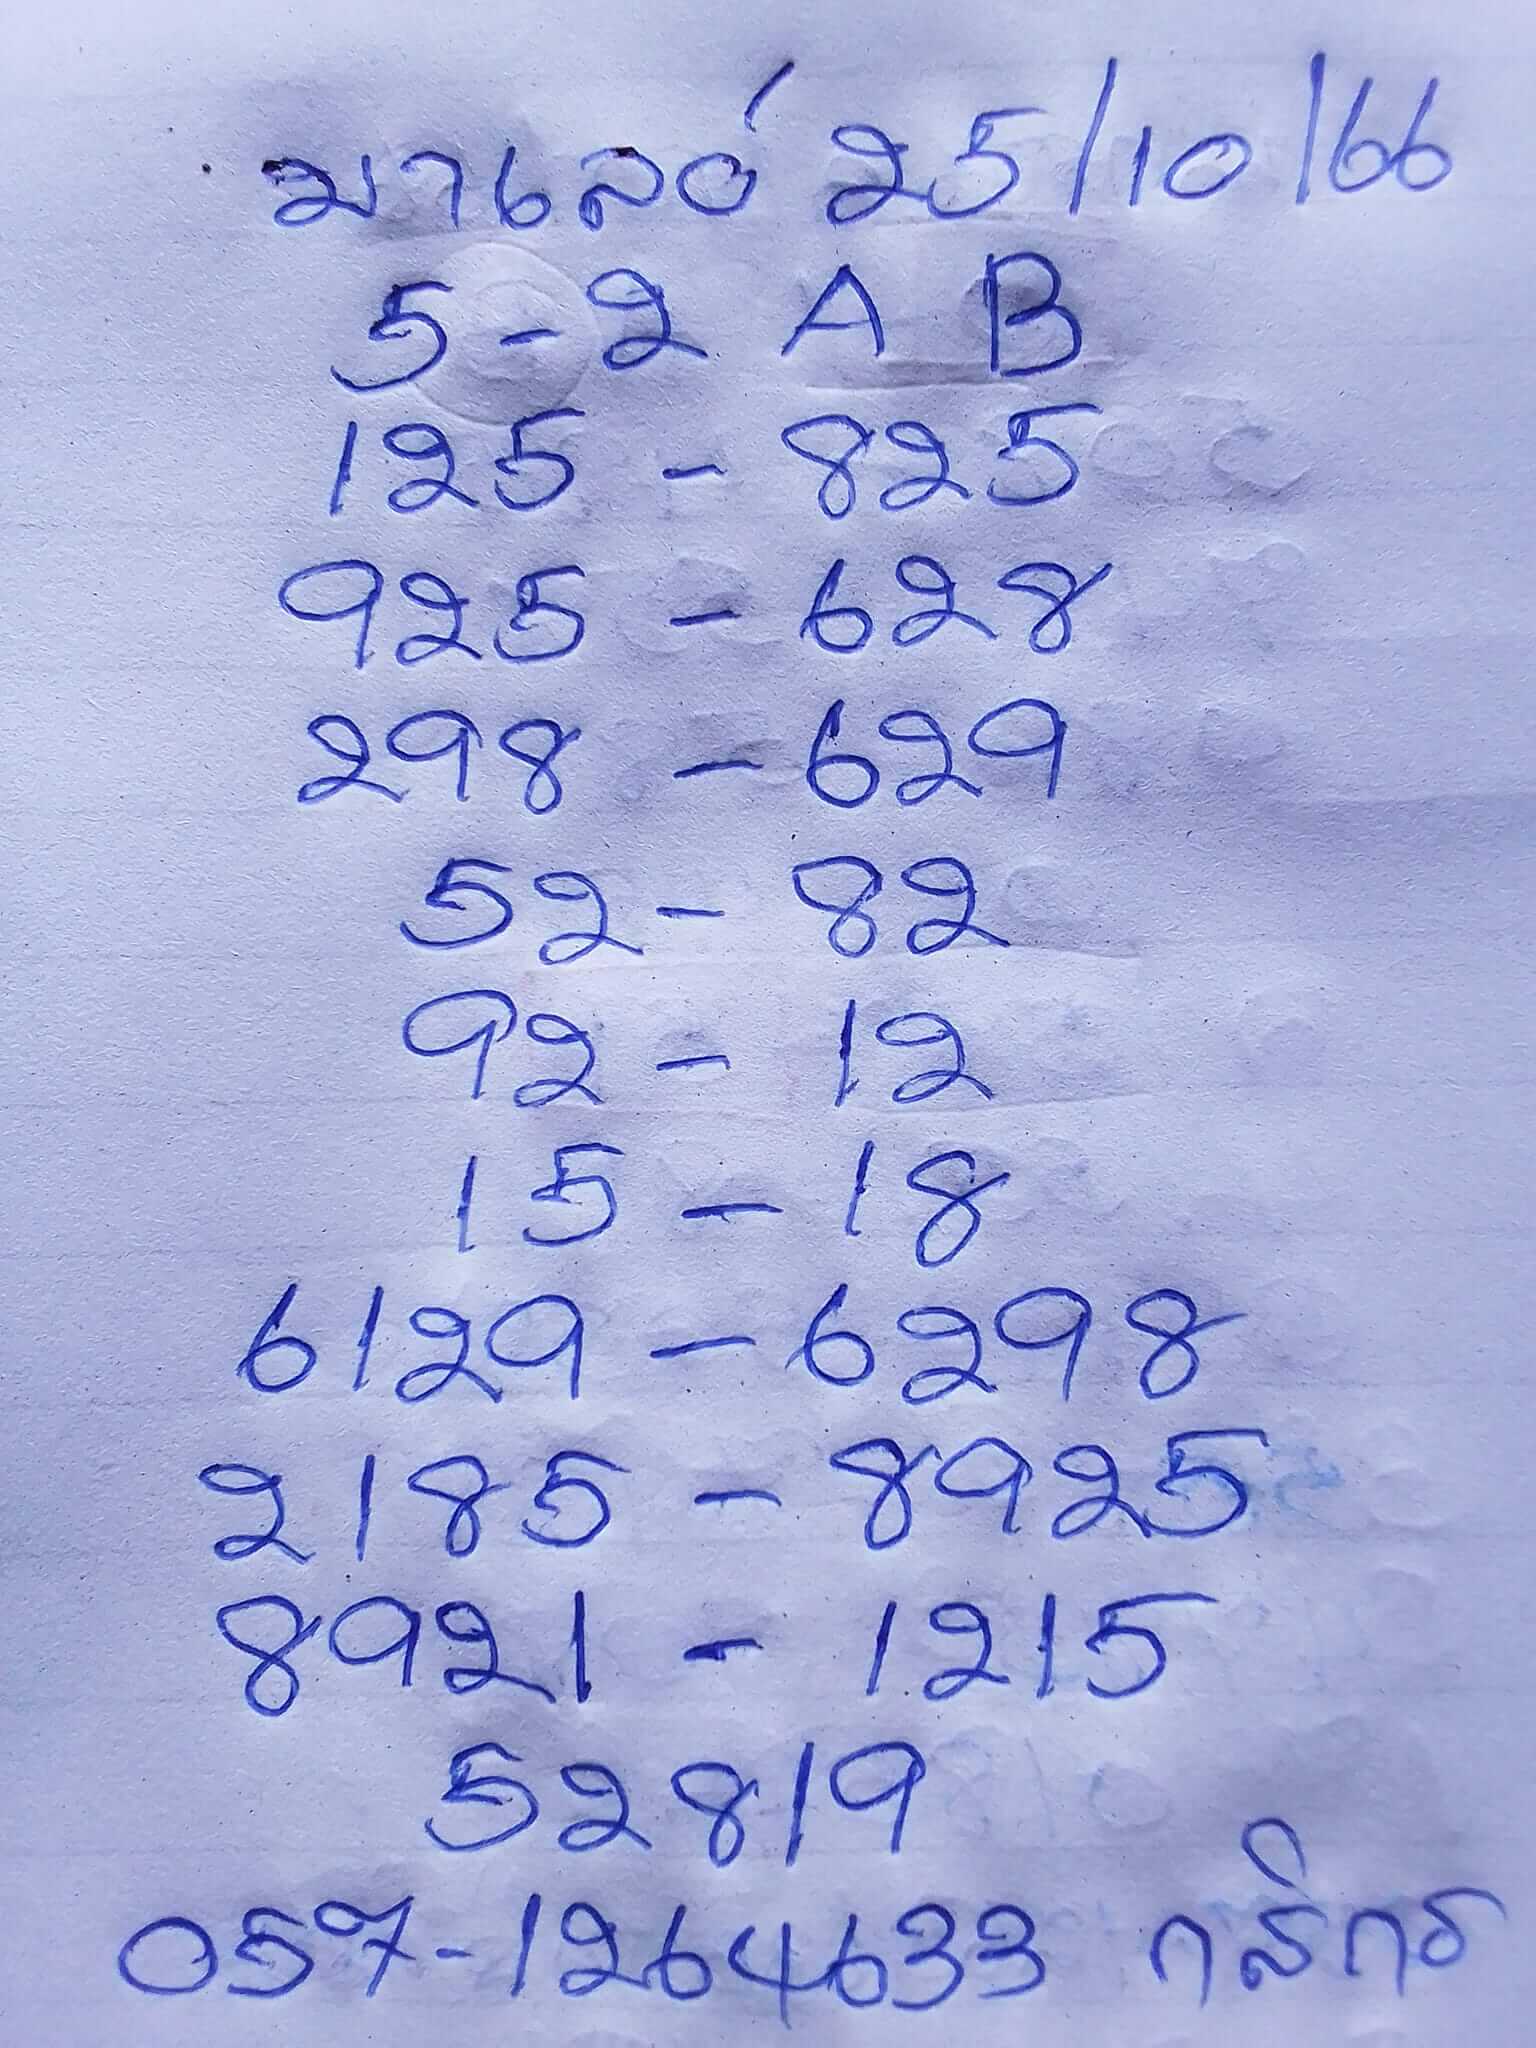 มาเลย์ 25/10/66
5-2 A B
125 - 825
925 - 628
298 - 629
52 - 82
92 - 12
15 - 18
6129 - 6298
2185 - 8925
8921 - 1215
52819
057-1264633 กสิกร